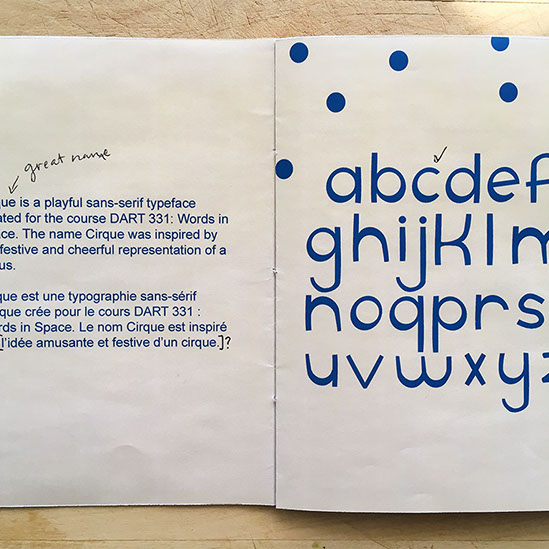 great name
que is a playful sans-serif typeface
ated for the course DART 331: Words in
ce. The name Cirque was inspired by
festive and cheerful representation of a
us.
que est une typographie sans-sérif
que crée pour le cours DART 331 :
rds in Space. Le nom Cirque est inspiré
[l'idée amusante et festive d'un cirque.]?
abcdef
ghijklm
noqprs
uvwxyz